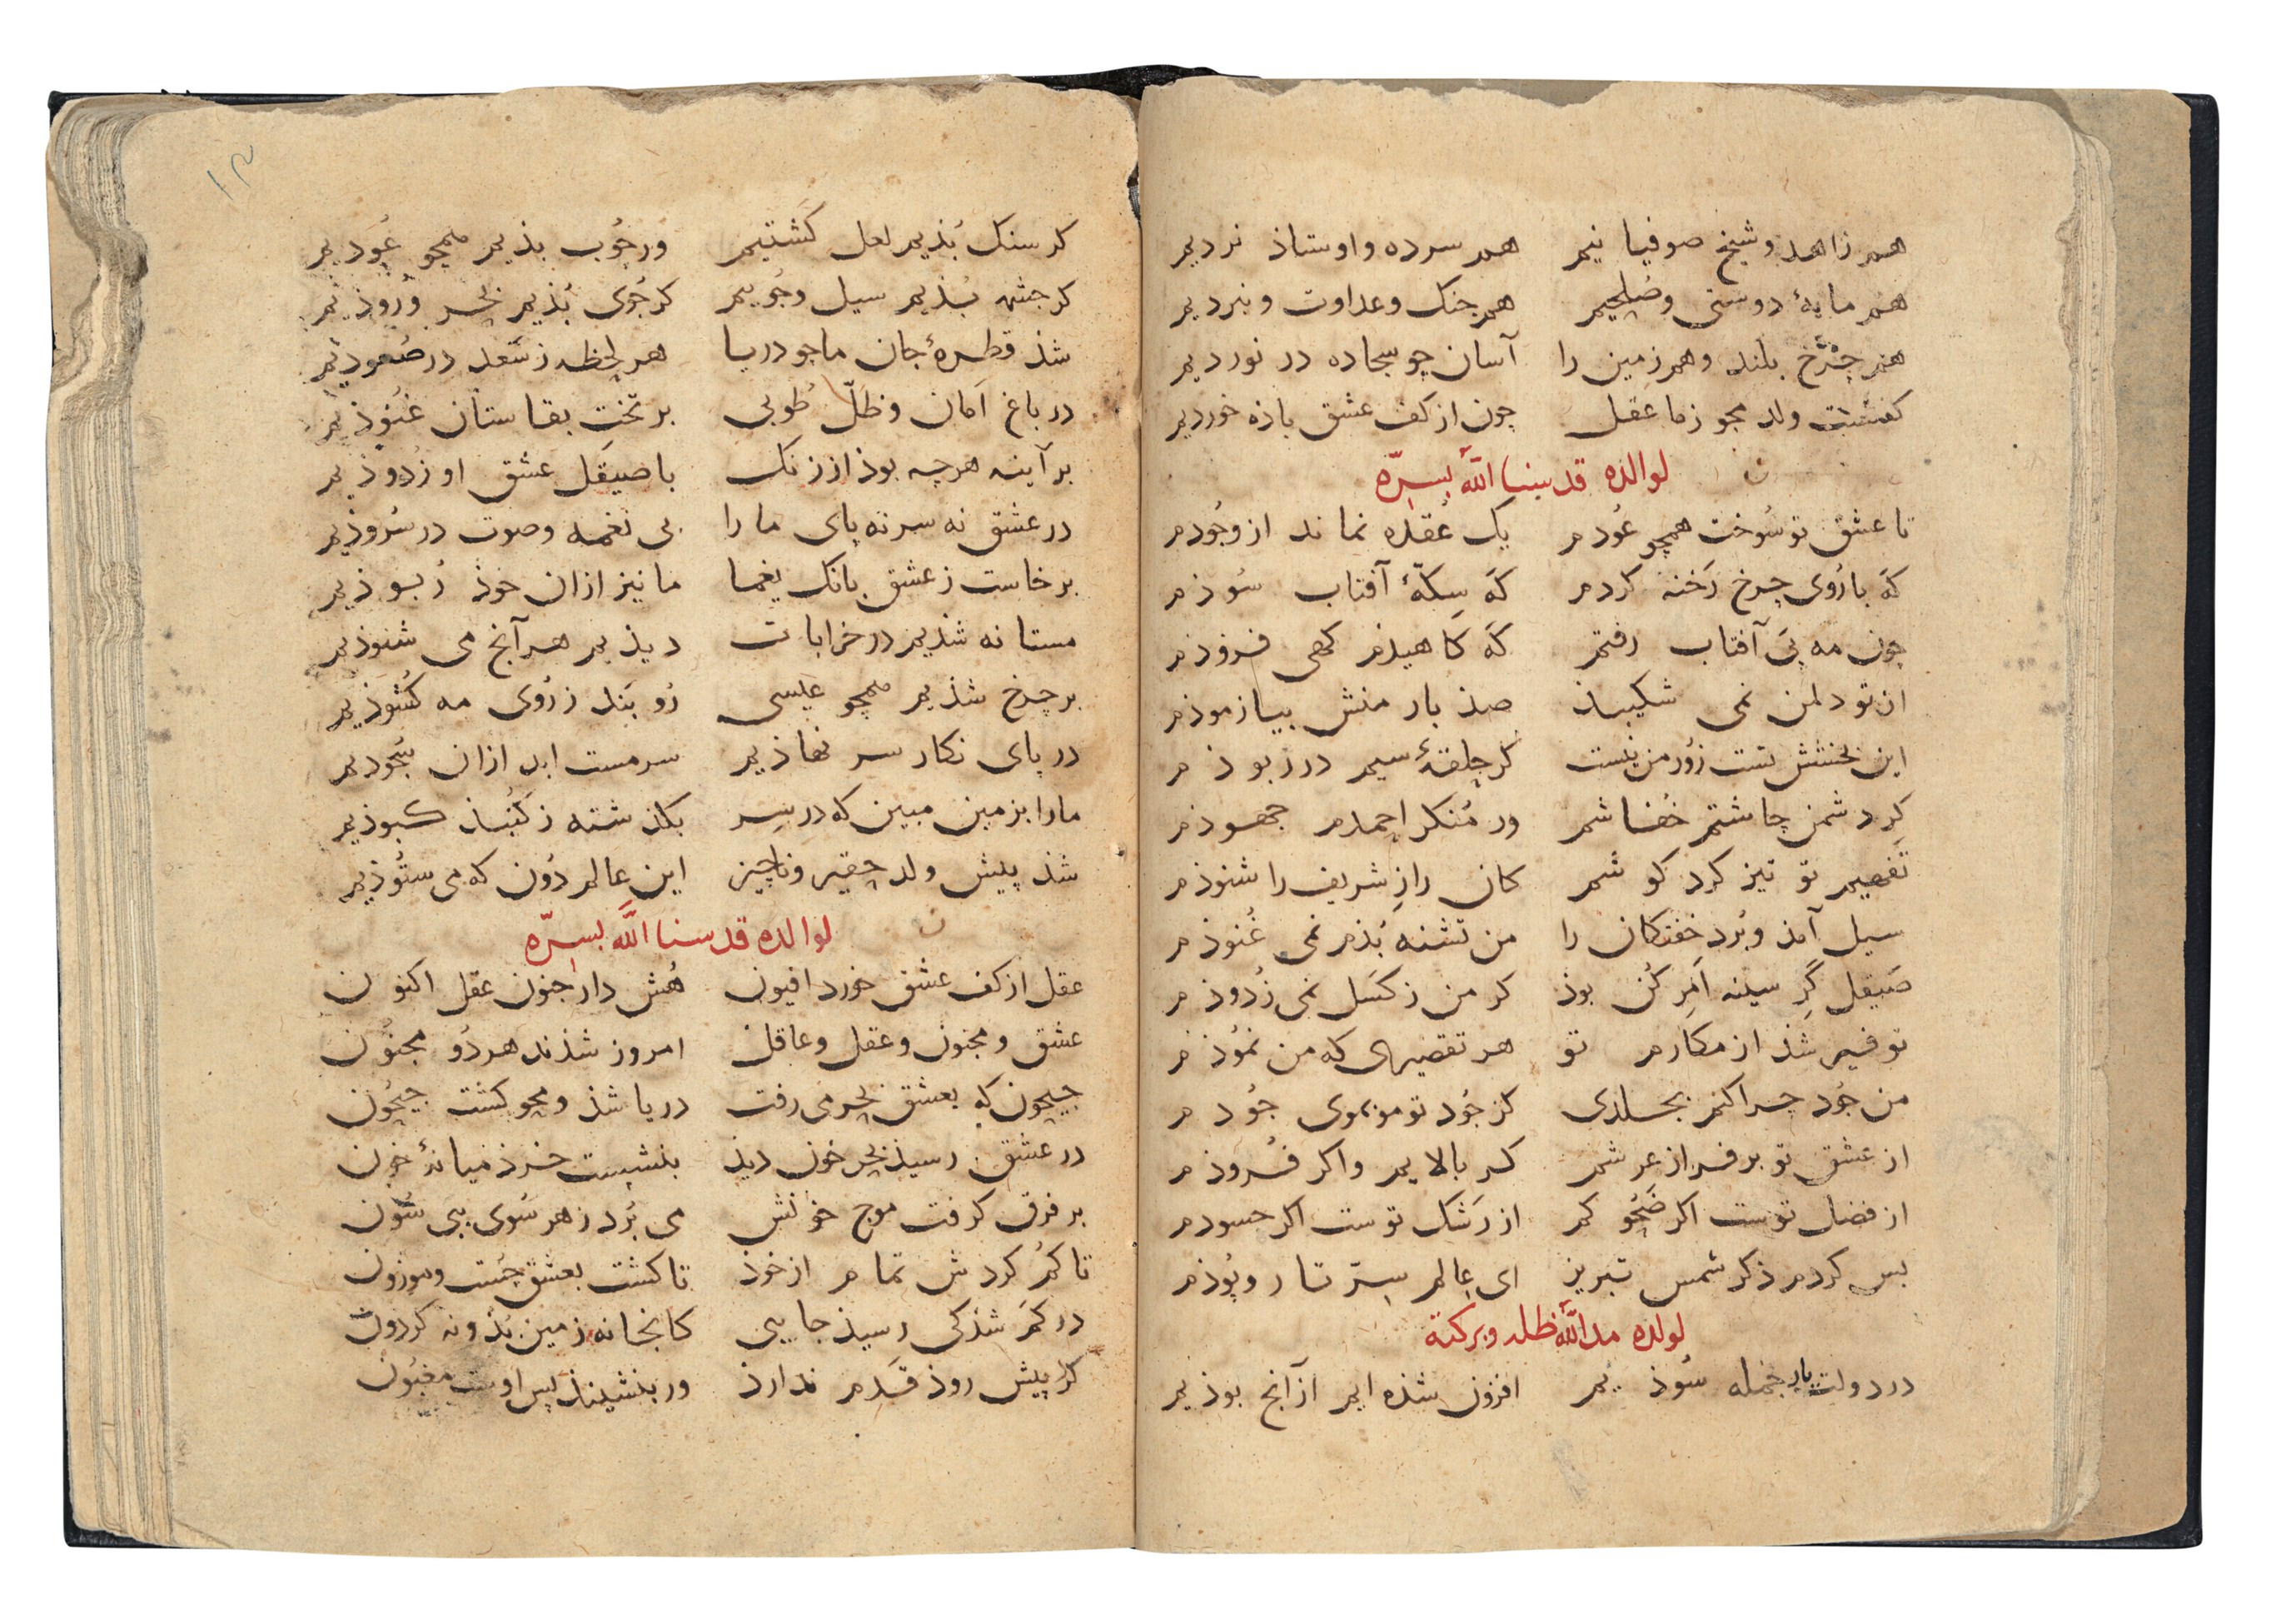 هم زاهد و شیخ صوفیانیم هم سرده و اوستاذ نردیم
هم مایهٔ دوستی و صلحیم هم جنک و عداوت و نبردیم
هم چرخ بلند و هم زمین را آسان چو سجاده در نوردیم
کفتست ولد مجو ز ما عقل چون از کف عشق باذه خوردیم
لوالده قدسنا الله بسره
تا عشق تو سوخت همچو عودم یک عقده نماند از وجودم
که باروی چرخ رخنه کردم که سکهٔ آفتاب سوذم
چون مه پی آفتاب رفتم که کاهیذم کهی فزوذم
از تو دل من نمی شکیبذ صذ بار منش بیازموذم
این بخشش تست زور من نیست کر حلقهٔ سیم در ربوذم
کر دشمن چاشتم خفاشم ور منکر احمدم جهوذم
تفهیم تو تیز کرد کوشم کان راز شریف را شنوذم
سیل آمذ و برد خفتکان را من تشنه بذم نمی غنوذم
صیقل کر سینه امر کن بوذ کر من ز کسل نمی زدوذم
توفیر شذ از مکارم تو هر تقصیری که من نموذم
من جود چرا کنم بجلدی کز جود تو مو بموی جودم
از عشق تو بر فراز عرشم کر بالایم و اکر فروذم
از فضل توست اکر ضحوکم از رشک توست اکر حسودم
بس کردم ذکر شمس تبریز ای عالم سر تار و پوذم
لولده مد الله ظله و برکته
در دولت یار جمله سوذیم افزون شذه ایم از آنچ بوذیم
۱۳
کر سنک بذیم لعل کشتیم ور چوب بذیم همچو عودیم
کر چشمه بذیم سیل و جوییم کر جوی بذیم بحر و روذیم
شذ قطرهٔ جان ما چو دریا هر لحظه ز شعله در صعودیم
در باغ امان و ظل طوبی بر تخت بقا ستان غنوذیم
بر آینه هر چه بوذ از زنک با صیقل عشق او زدوذیم
در عشق نه سر نه پای ما را بی نغمه و صوت در سروذیم
برخاست ز عشق بانک یغما ما نیز از ان خوذ ربوذیم
مستانه شذیم در خرابات دیذیم هر آنچ می شنوذیم
بر چرخ شذیم همچو عیسی رو بند ز روی مه کشوذیم
در پای نکار سر نهاذیم سرمست ابد از ان سجودیم
ما را بزمین مبین که در سر بکذشته ز کنبذ کبوذیم
شذ پیش ولد حقیر و ناچیز این عالم دون که می ستوذیم
لوالده قدسنا الله بسره
عقل از کف عشق خورد افیون هش دار جنون عقل اکنون
عشق و مجنون و عقل و عاقل امروز شذند هر دو مجنون
جیحون که بعشق بحر می رفت دریا شذ و محو کشت جیحون
در عشق رسیذ بحر خون دیذ بنشست خرذ میانهٔ خون
بر فرق کرفت موج خونش می برد ز هر سوی ببی سون
تا کم کردش تمام از خوذ تا کشت بعشق چست و موزون
در کم شذکی رسیذ جایی کانجا نه زمین بذ و نه کردون
کر پیش روذ قدم ندارذ ور بنشیند پس اوست مغبون